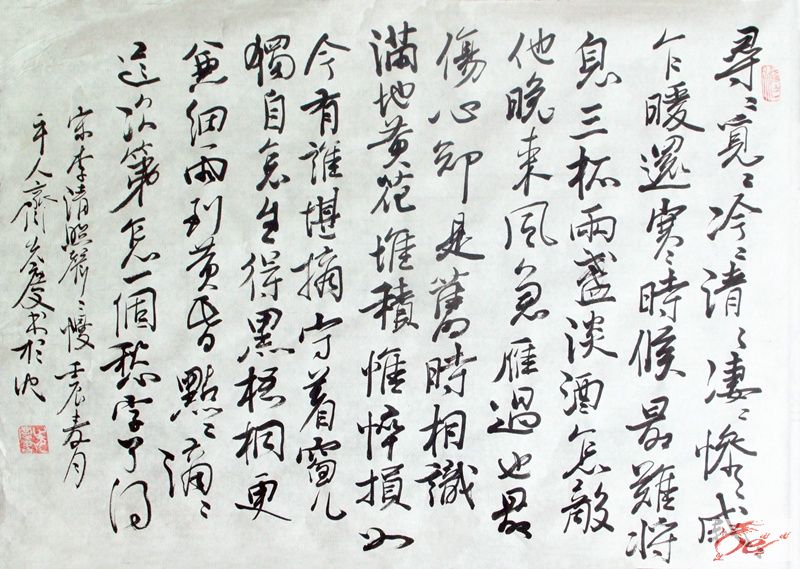 尋〻覓〻冷〻清〻凄〻惨〻戚〻
乍暖還寒時候最難将
息三杯兩盞淡酒怎敵
他晚来風急雁過也最
傷心却是舊時相識
滿地黄花堆積憔悴損如
今有誰堪摘守着窗儿
獨自怎生得黑梧桐更
兼細雨到黄昏點〻滴〻
這次第怎一個愁字了得
宋李清照聲〻慢壬辰春月
人齋慶书於沈